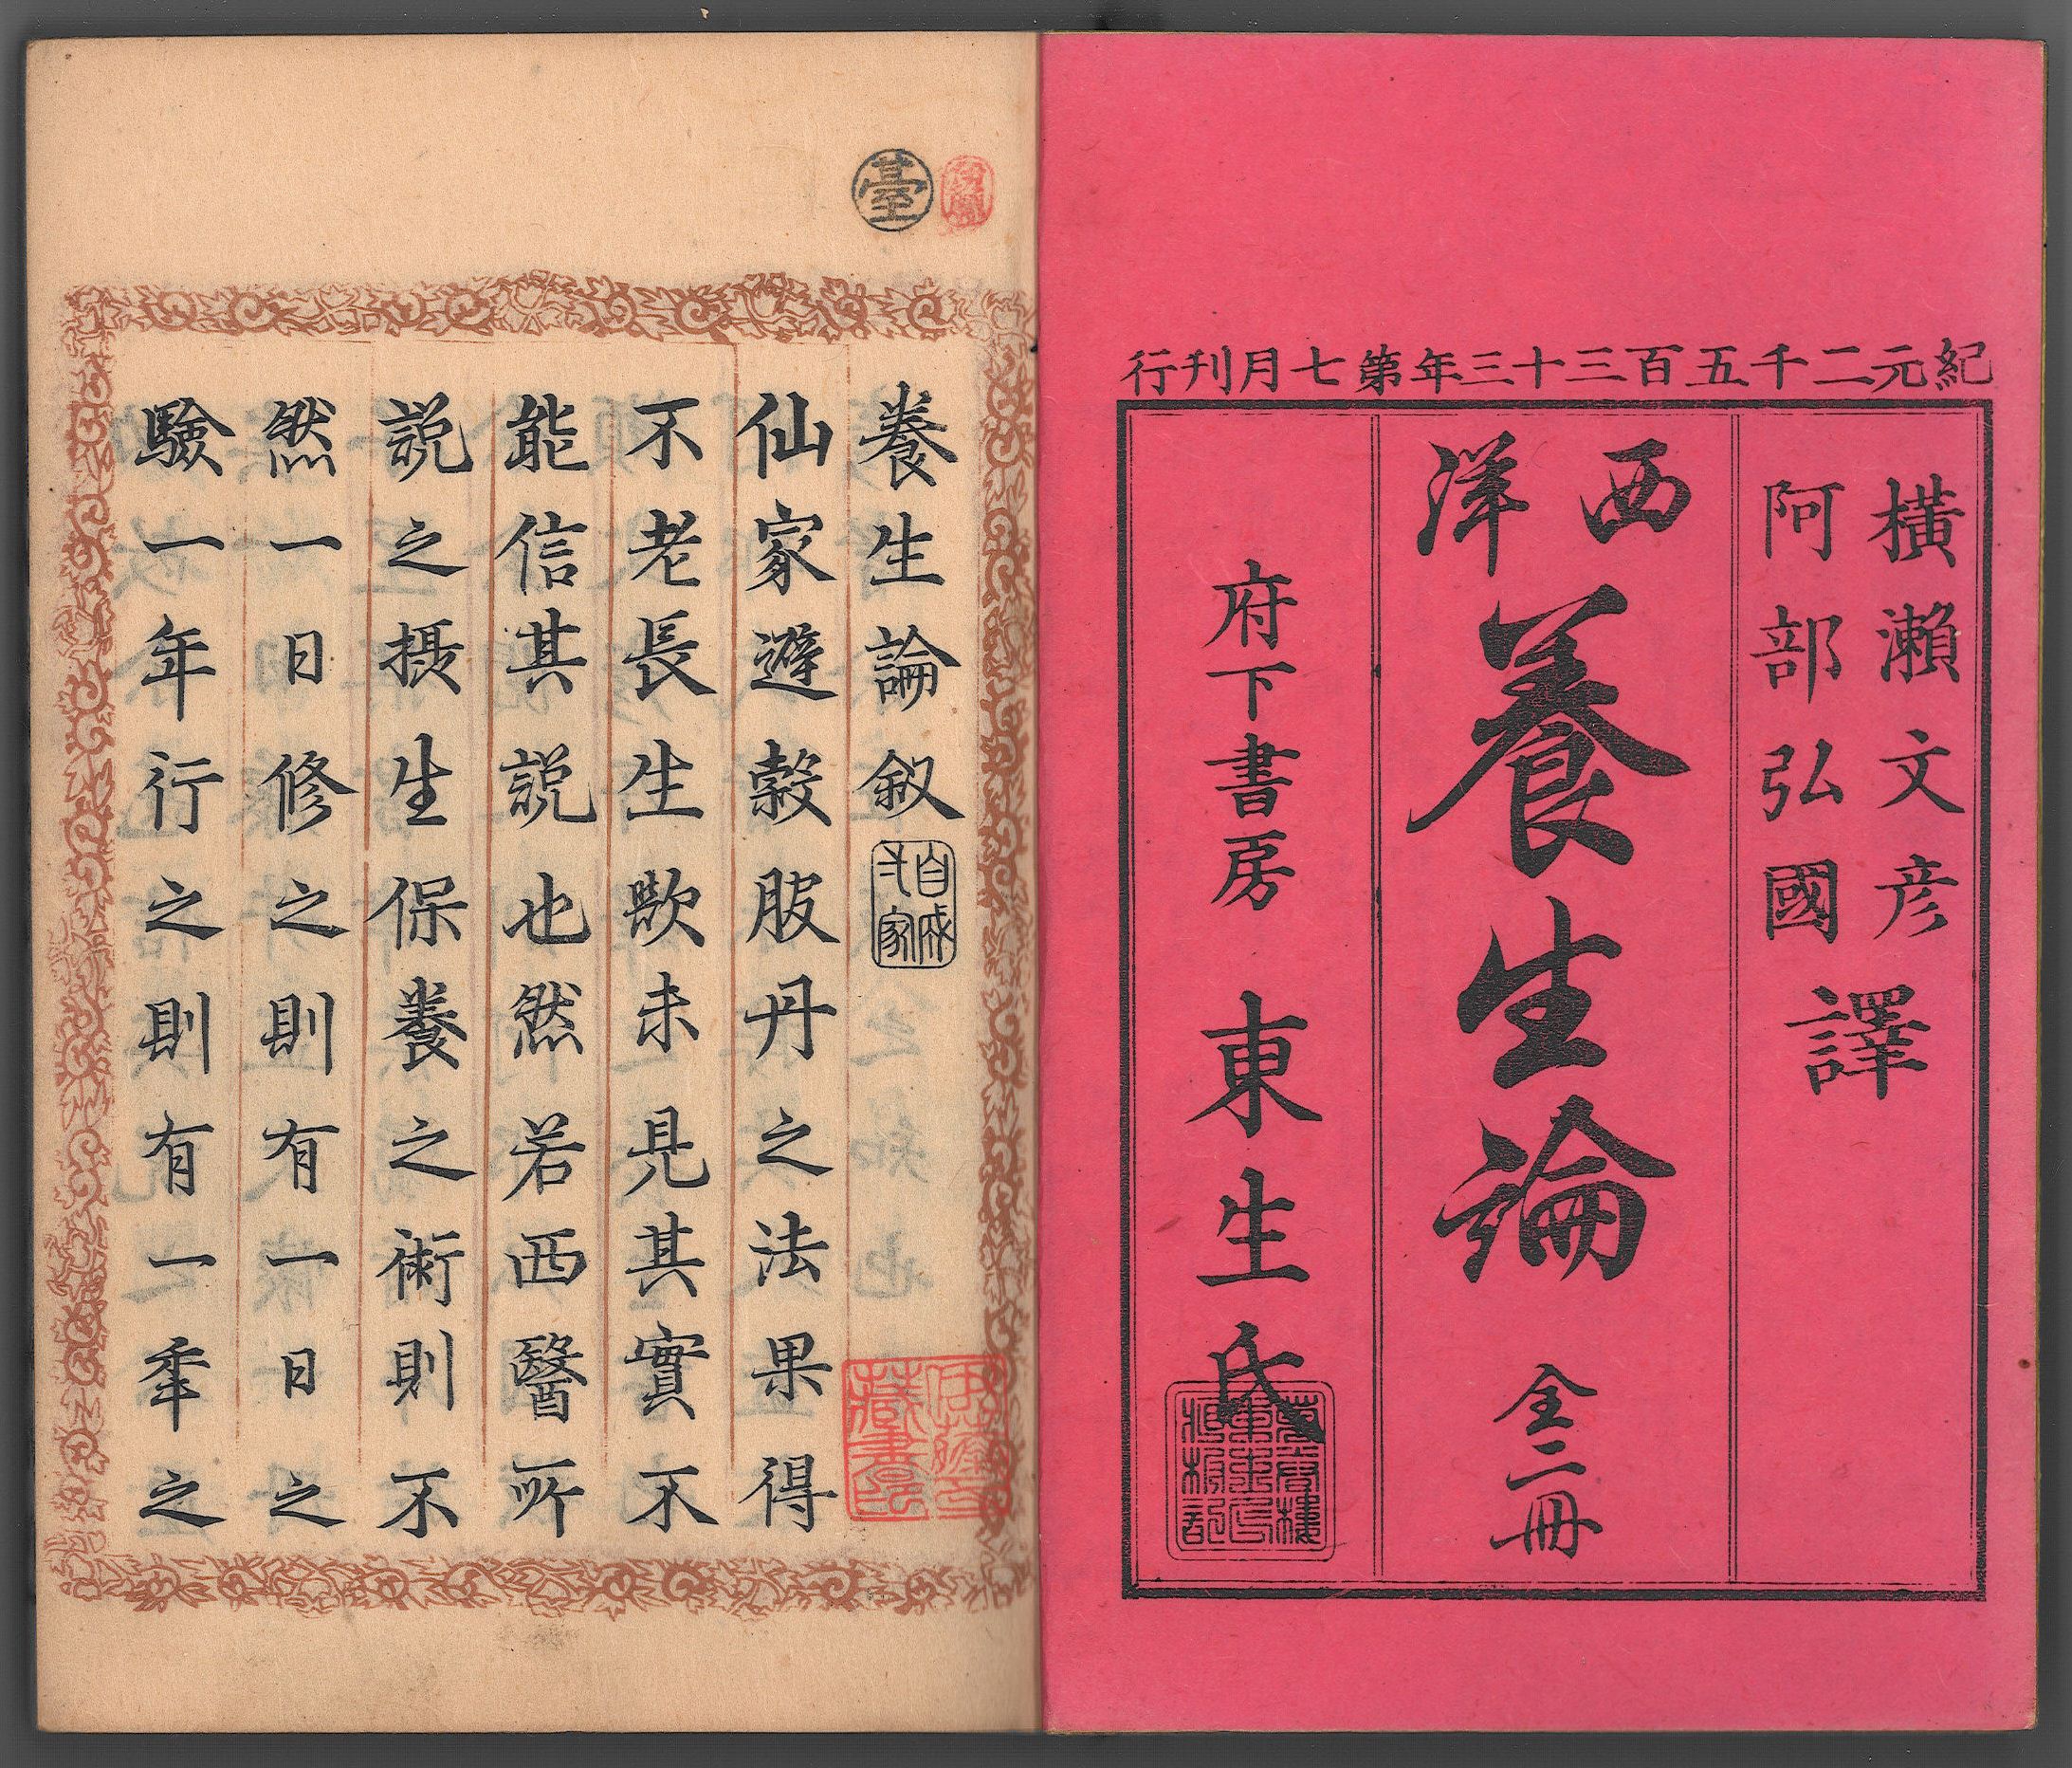 紀元二千五百三十三年第七月刊行
橫瀨文彦
阿部弘國
譯
西洋
養生論 全二冊
府下書房 東生氏
臺
養生論叙
仙家避穀服丹之法果得
不老長生歟未見其實不
能信其説也然若西醫所
説之摂生保養之術則不
然一日修之則有一日之
驗一年行之則有一年之